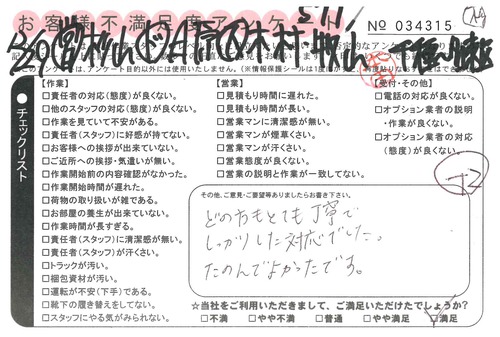 お客様不満足度アンケート
No 034315
●チェックリスト
【作業】
□責任者の対応(態度)が良くない。
□他のスタッフの対応(態度)が良くない。
□作業を見ていて不安がある。
□責任者(スタッフ)に好感が持てない。
□お客様への挨拶が出来ていない。
□ご近所への挨拶・気遣いが無い。
□作業開始前の内容確認がなかった。
□作業開始時間が遅れた。
□荷物の取り扱いが雑である。
□お部屋の養生が出来ていない。
□作業時間が長すぎる。
□責任者(スタッフ)に清潔感が無い。
□責任者(スタッフ)が汗くさい。
□トラックが汚い。
□梱包資材が汚い。
□運転が不安(下手)である。
□靴下の履き替えをしてない。
□スタッフにやる気がみられない。
【営業】
□見積もり時間に遅れた。
□見積もり時間が長い。
□営業マンに清潔感が無い。
□営業マンが煙草くさい。
□営業マンが汗くさい。
□営業態度が良くない。
□営業の説明と作業が一致してない。
【受付・その他】
□電話の対応が良くない。
□オプション業者の説明
・作業が良くない。
□オプション業者の対応
(態度)が良くない。
その他、ご意見・ご要望等ありましたらお書き下さい。
どのかたもとても丁寧で
しっかりした対応でした。
たのんでよかったです。
☆当社をご利用いただきまして、ご満足いただけたでしょうか?
□不満 □やや不満 □普通 □やや満足 □満足